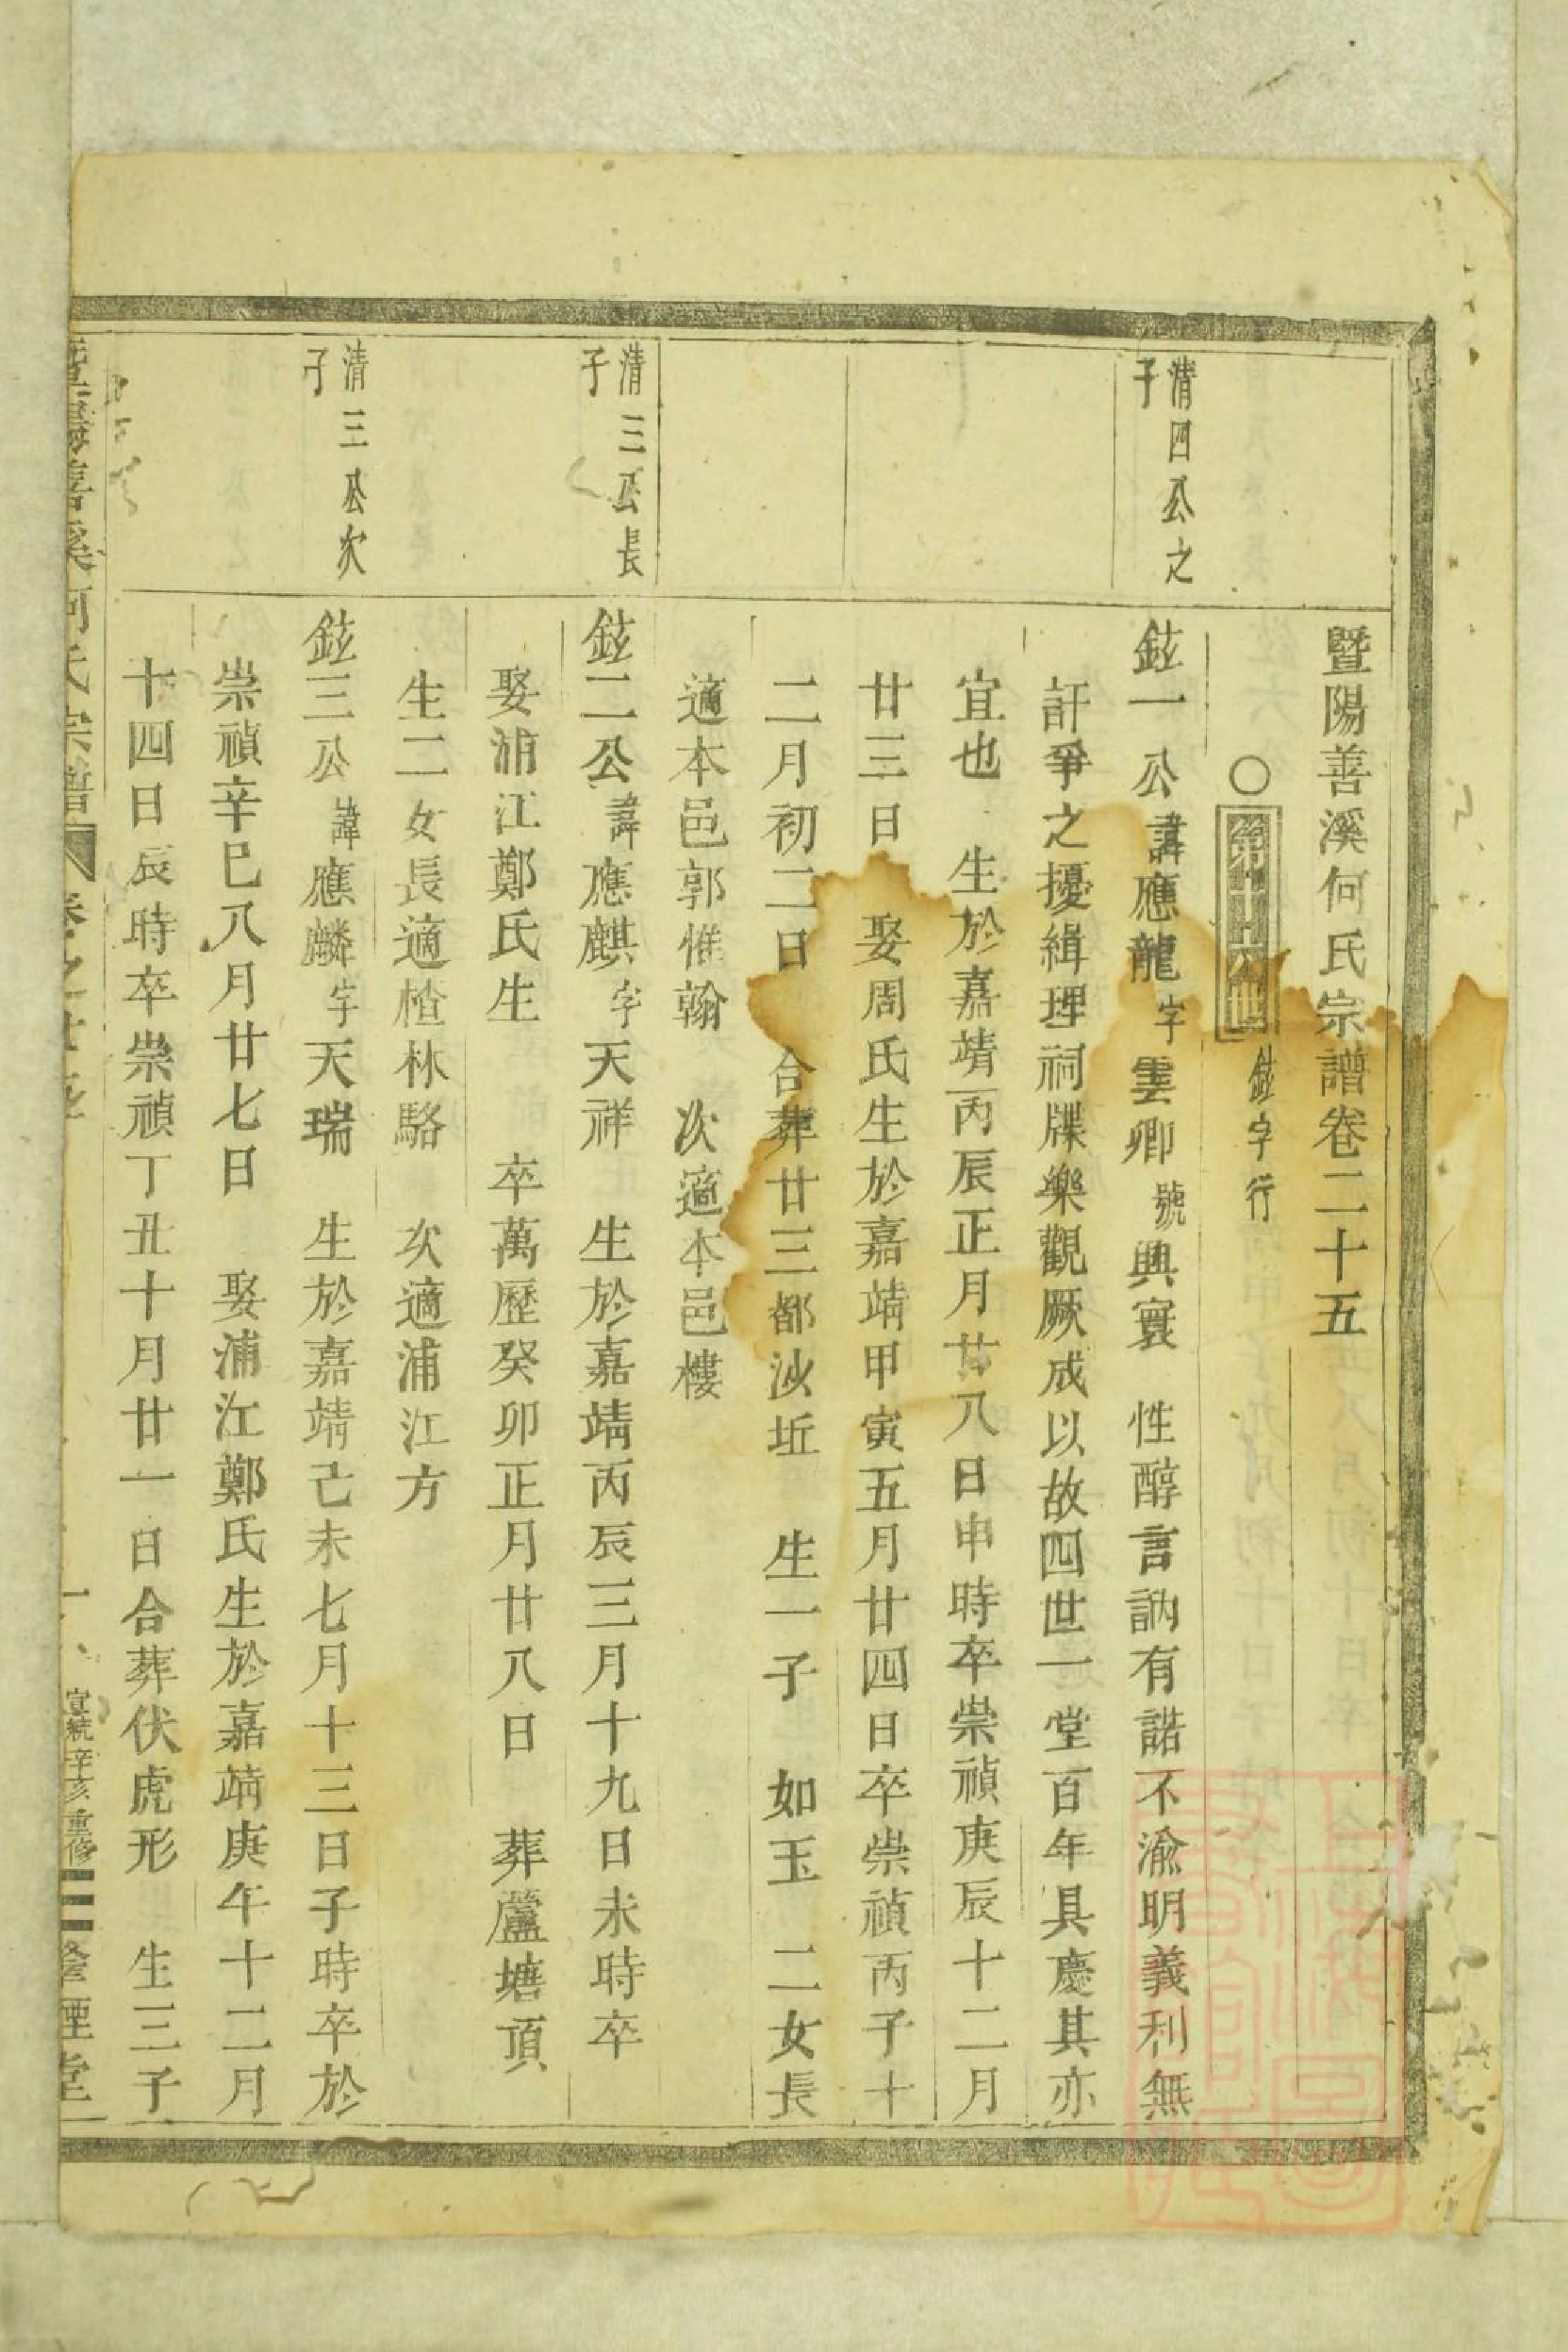 暨陽善溪何氏宗譜卷二十五
○第十六世 鉉字行
清四公之
子
鉉一公諱應龍字雲卿號興寰 性醇言訥有諾不渝明義利無
訐爭之擾緝理祠牒樂觀厥成以故四世一堂百年具慶其亦
宜也 生於嘉靖丙辰正月廿八日申時卒崇禎庚辰十二月
廿三日 娶周氏生於嘉靖甲寅五月廿四日卒崇禎丙子十
二月初二日 合葬廿三都沙坵 生一子 如玉 二女長
適本邑郭惟翰 次適本邑樓
清三公長
子
鉉二公諱應麒字天祥 生於嘉靖丙辰三月十九日未時卒
娶浦江鄭氏生 卒萬歷癸卯正月廿八日 葬蘆塘頂
生二女長適楂林駱 次適浦江方
清三公次
子
鉉三公諱應麟字天瑞 生於嘉靖己未七月十三日子時卒於
崇禎辛巳八月廿七日 娶浦江鄭氏生於嘉靖庚午十二月
十四日辰時卒崇禎丁丑十月廿一日合葬伏虎形 生三子
暨陽善溪何氏宗譜 卷之廿五 一 宣統辛亥重修